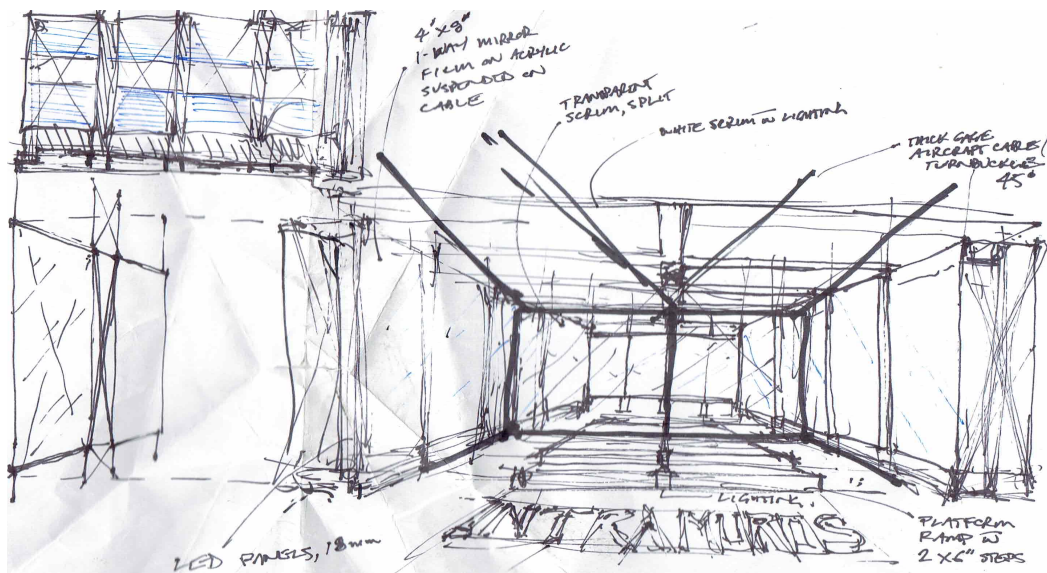 4'X8'
1-WAY MIRROR
FILM ON ACRYLIC
SUSPENDED ON
CABLE
TRANSPARENT
SCRIM, SPLIT
WHITE SCRIM W LIGHTING
THICK GAGE
AIRCRAFT CABLE/
TURNBUCKLES
45°
LIGHTING
INTRAMUROS
PLATFORM
RAMP W
2 X6" STEPS
LED PANELS, 18mm